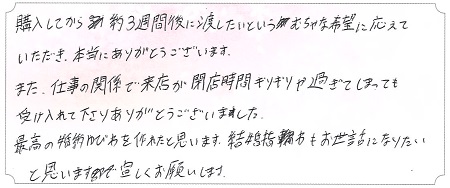 購入してから約3週間後に渡したいというむちゃな希望に応えて
いただき、本当にありがとうございます。
また、仕事の関係で来店が閉店時間ギリギリや過ぎてしまっても
受け入れて下さりありがとうございました。
最高の婚約ゆびわを作れたと思います。結婚指輪もお世話になりたい
と思いますので宜しくお願いします。